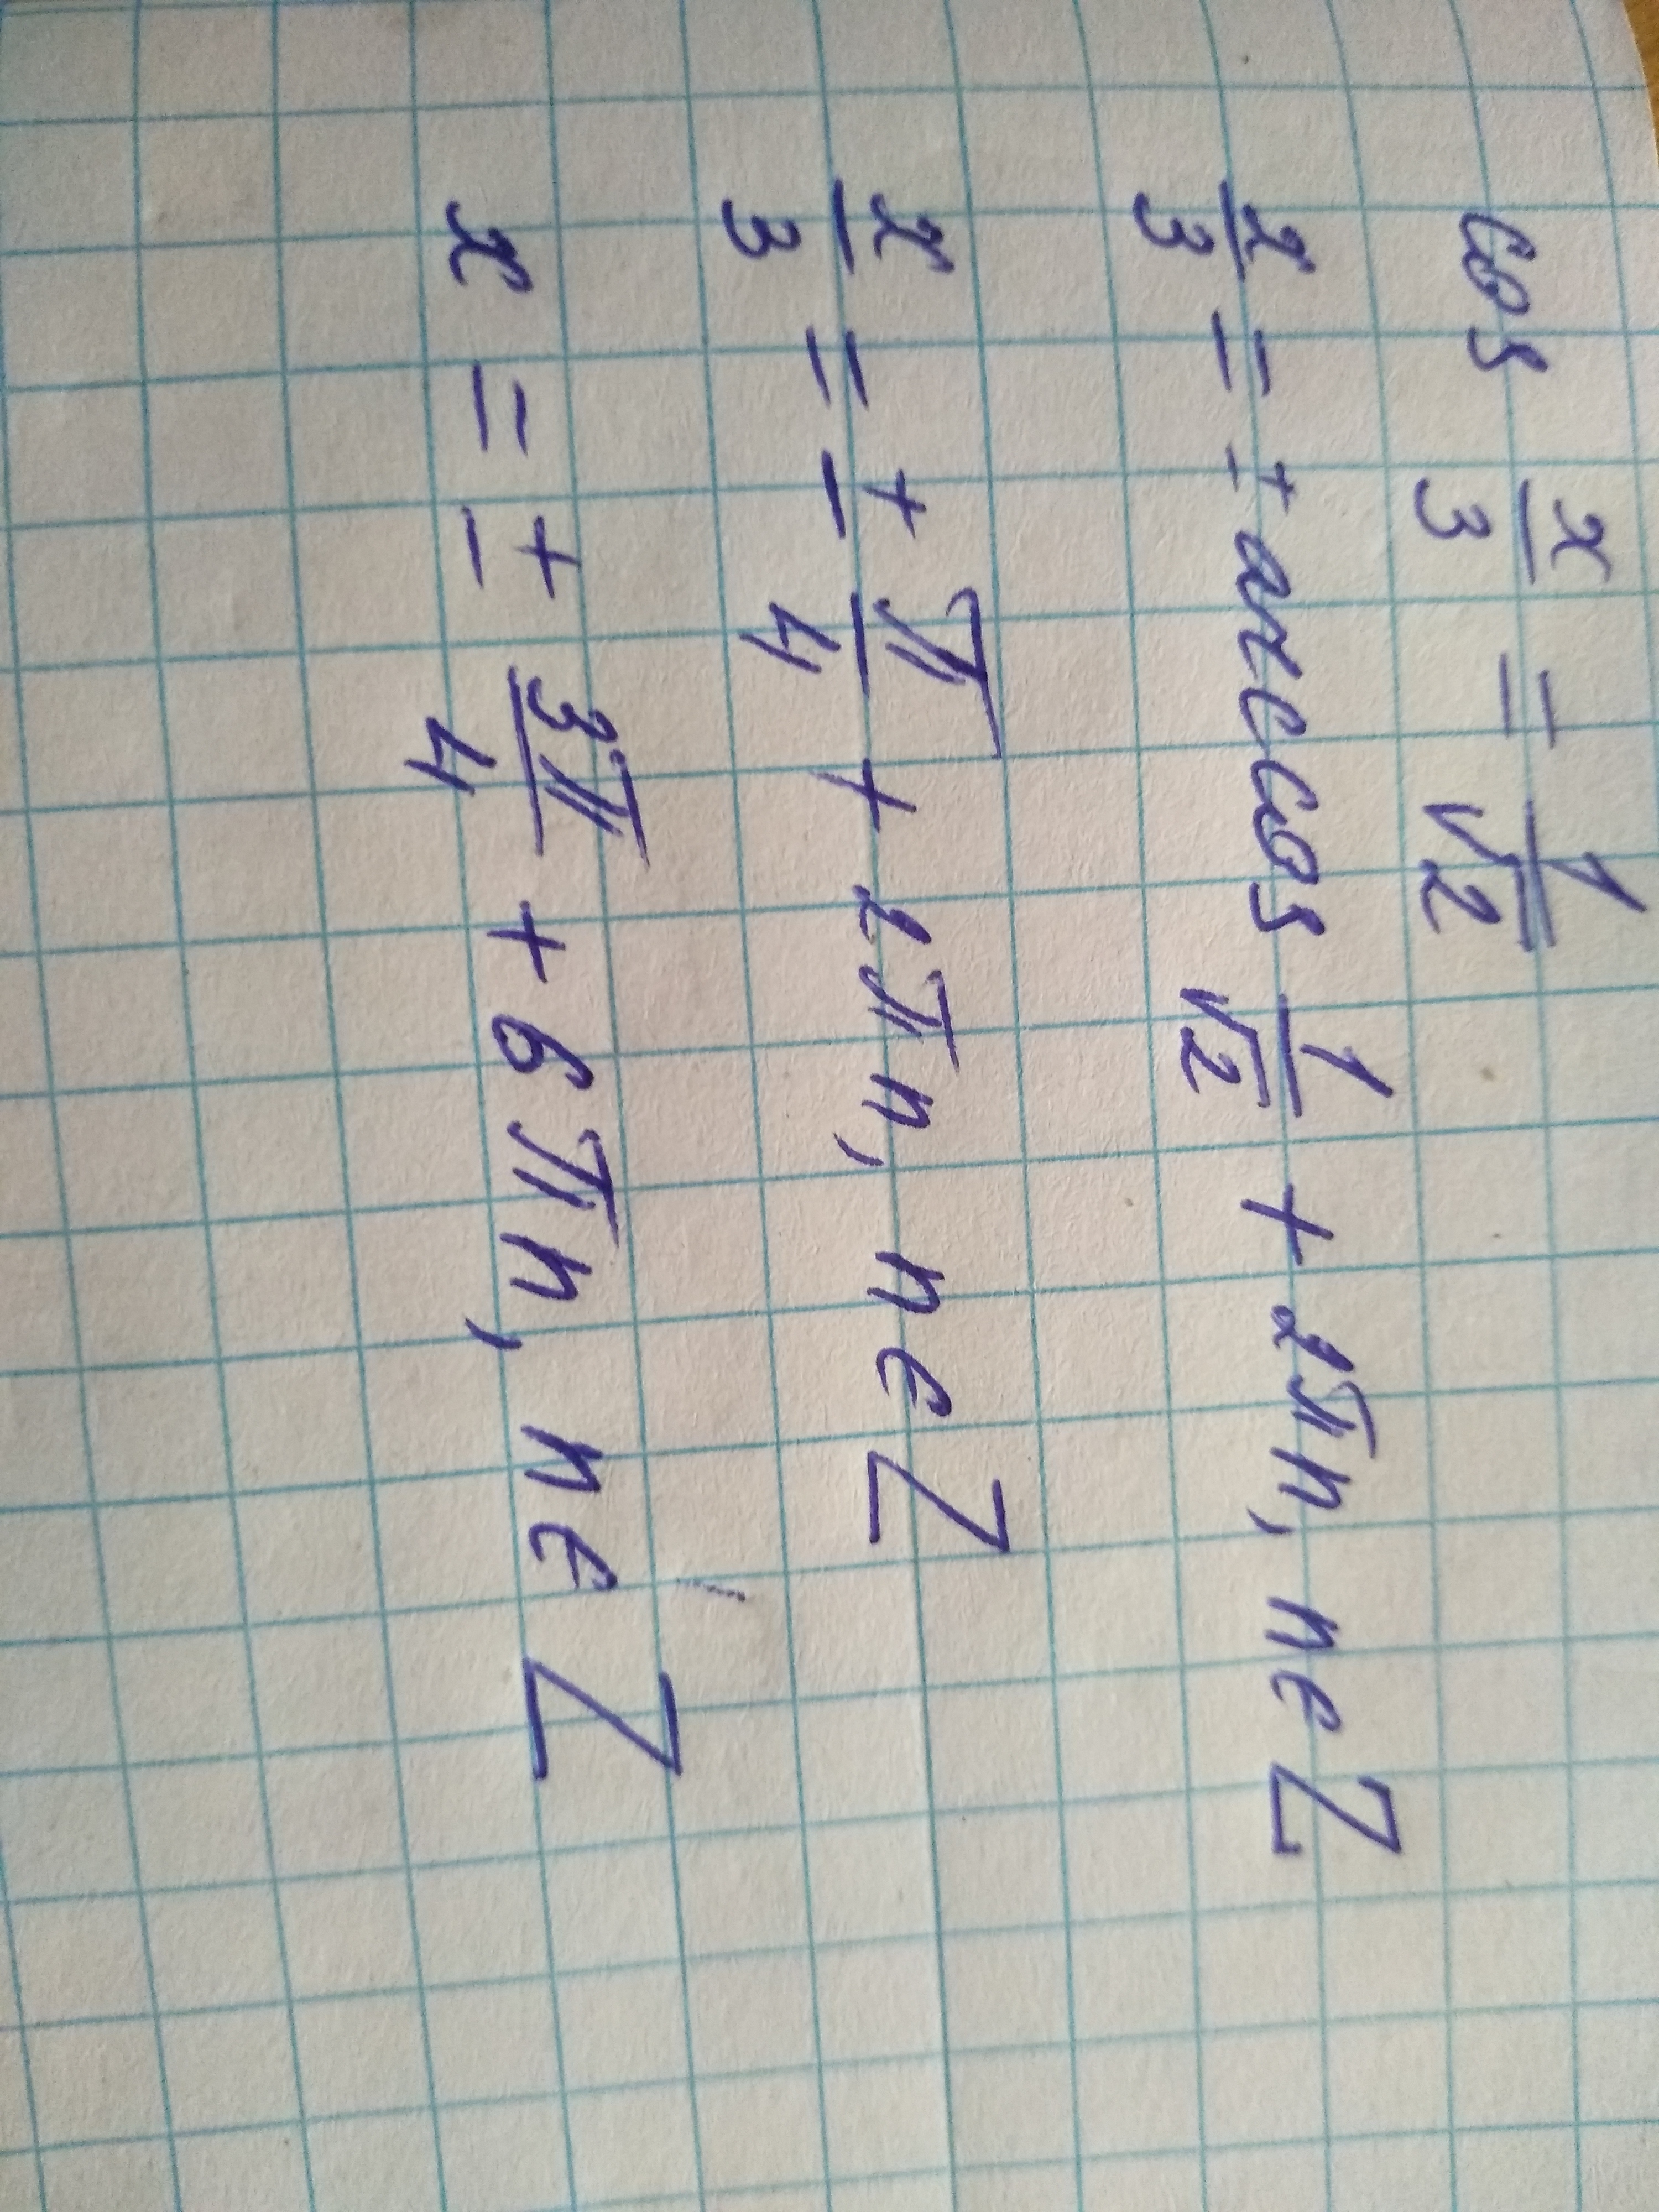 cos x/3 = 1/√2
x/3 = ± arccos 1/√2 + 2πn, n∈Z
x/3 = ± π/4 + 2πn, n∈Z
x = ± 3π/4 + 6πn, n∈Z